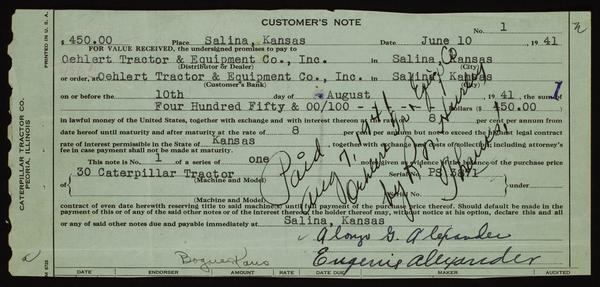 CUSTOMER'S NOTE
No. 1
$ 450.00 Place Salina, Kansas Date June 10, 1941
FOR VALUE RECEIVED, the undersigned promises to pay to
Oehlert Tractor & Equipment Co., Inc. in Salina, Kansas
(Distributor or Dealer) (City)
or order, at Oehlert Tractor & Equipment Co., Inc. in Salina, Kansas
(Customer's Bank) (City)
on or before the 10th day of August 1941, the sum of
Four Hundred Fifty & 00/100 dollars $450.00
in lawful money of the United States, together with exchange and with interest thereon at 8 per cent per annum
date hereof until maturity and after maturity at the rate of 8 per annum but not to exceed the highest legal contract
rate of interest permissible in the State of Kansas together with exchange costs of collection; including attorney's
fee in case payment shall not be made at maturity.
This note is No. 1 of a series of one balance of the purchase price
30 Caterpillar Tractor Serial No. PS
(Machine and Model)
(Machine and Model)
contract of even date herewith reserving title to said machine(s) until full payment of the purchase price thereof. Should default be made in the
payment of this or any of the said other notes or of the interest thereof, the holder thereof may, without notice at his option, declare this and all
or any of said other notes due and payable immediately at Salina, Kansas
Paid
Aug 7, 1941
Oehlert Tr & Eqp. Co
by
Alonzo G. Alexander
Eugenie Alexander
Bogue Kans
DATE ENDORSER DATE ENDORSER AMOUNT RATE INTEREST TOTAL AUDITED
PRINTED IN U.S.A.
CATERPILLAR TRACTOR CO.
PEORIA, ILLINOIS